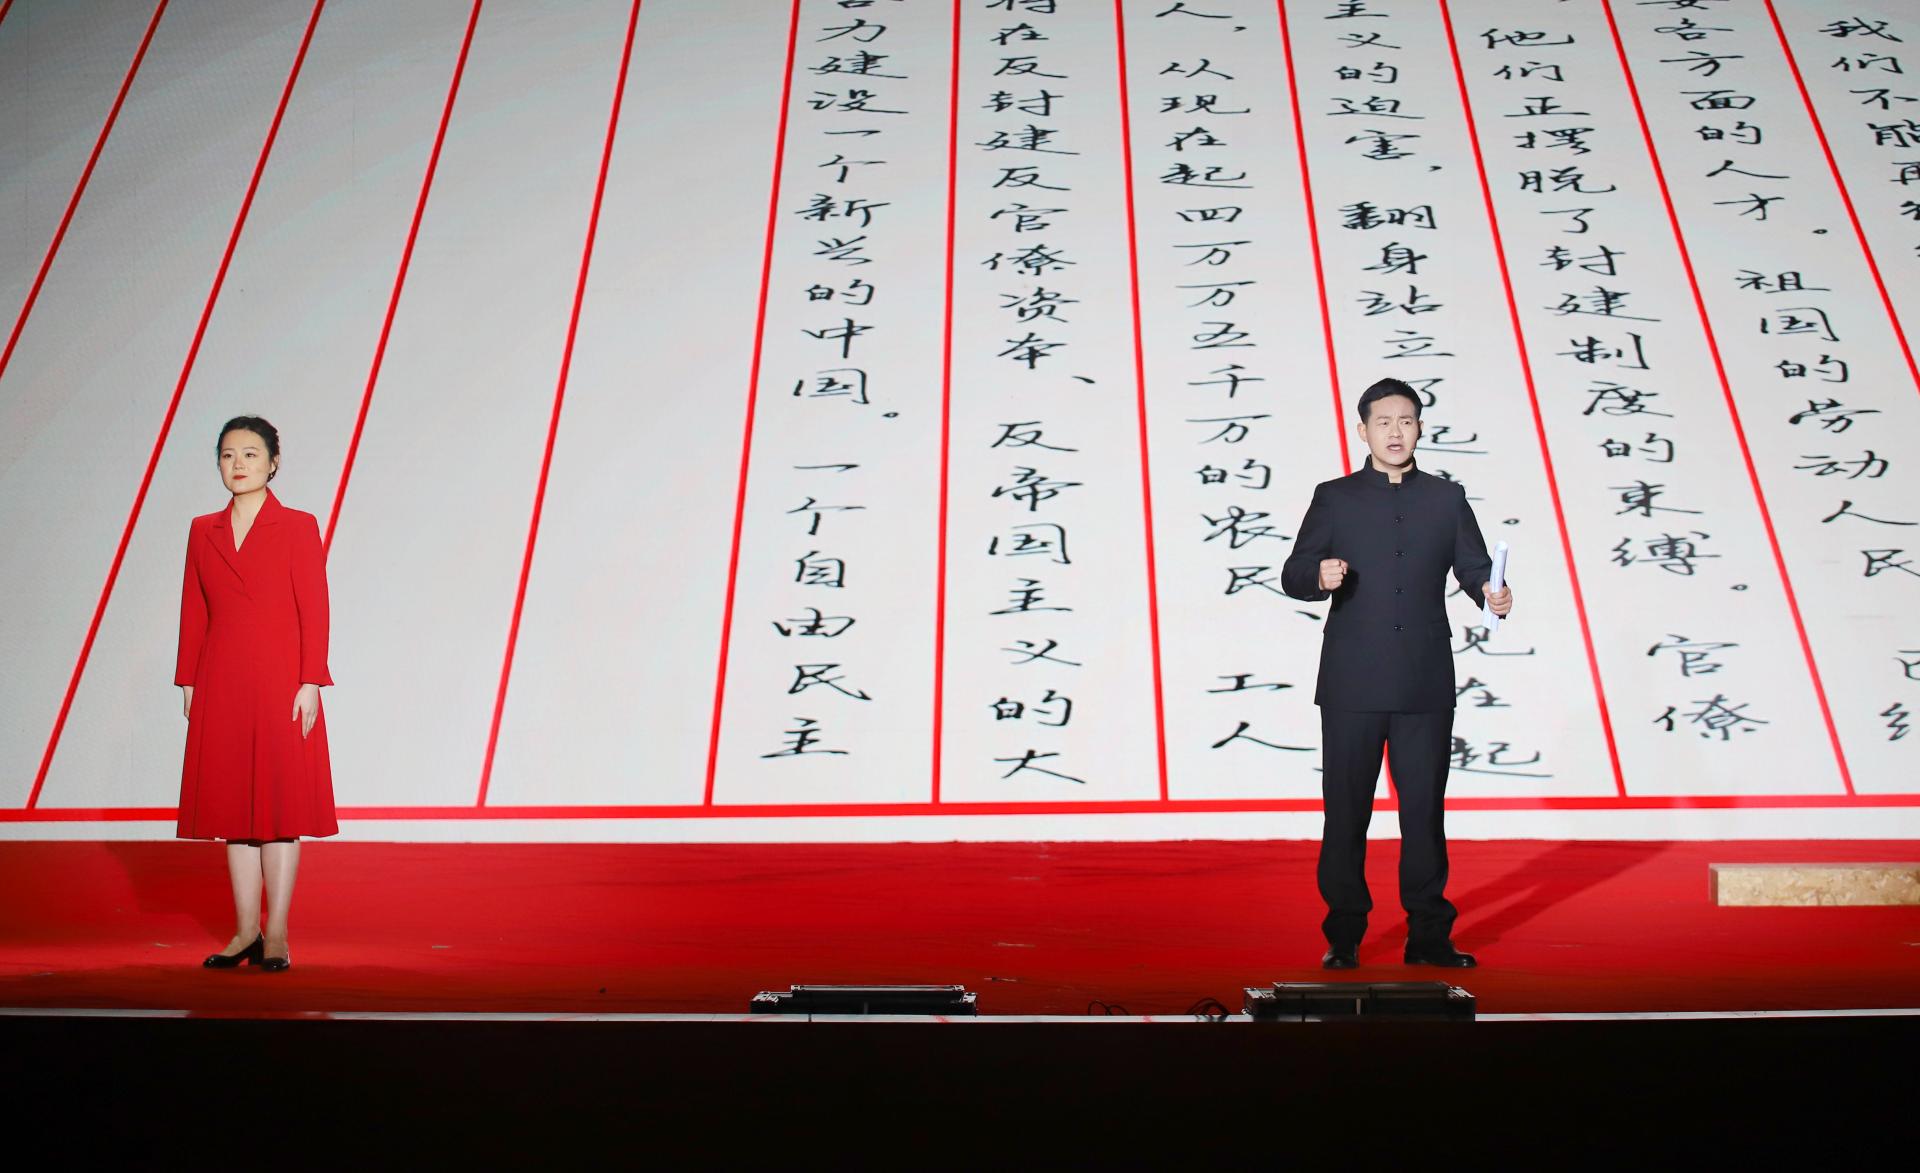 我们不能再
祖国的劳动人民
要各方面的人才。官僚
他们正摆脱了封建制度的束缚。
主义的迫害,翻身站立了起 。 见在起
人,从现在起四万万五千万的农民、工人
将在反封建反官僚资本、反帝国主义的大
力建设一个新兴的中国。一个自由民主